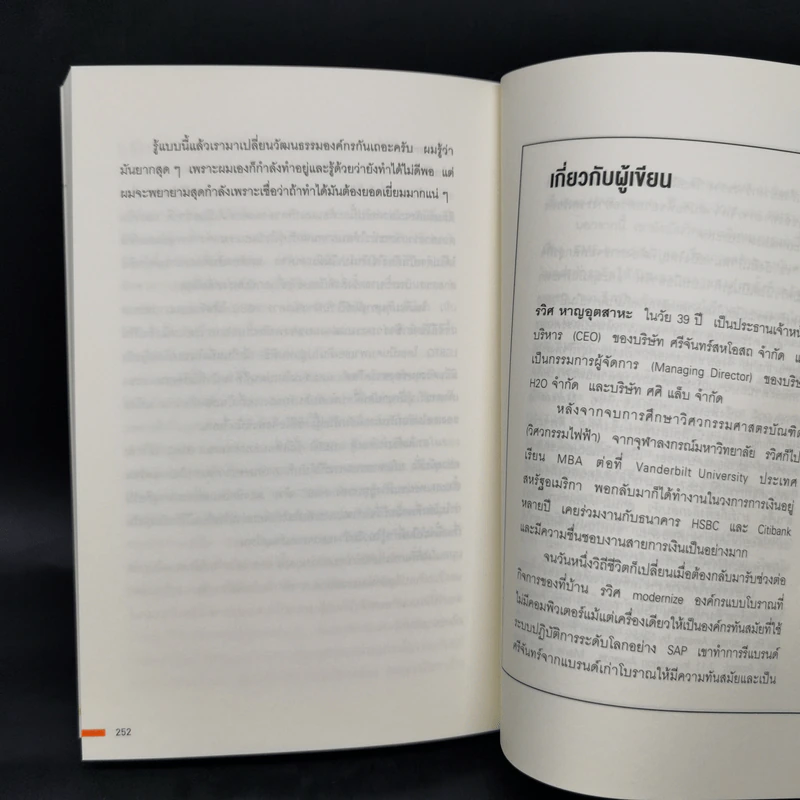 รู้แบบนี้แล้วเรามาเปลี่ยนวัฒนธรรมองค์กรกันเถอะครับ ผมรู้ว่า
มันยากสุด ๆ เพราะผมเองก็กำลังทำอยู่และรู้ด้วยว่ายังทำได้ไม่ดีพอ แต่
ผมจะพยายามสุดกำลังเพราะเชื่อว่าถ้าทำได้มันต้องยอดเยี่ยมมากแน่ ๆ
252
เกี่ยวกับผู้เขียน
รวิศ หาญอุตสาหะ ในวัย 39 ปี เป็นประธานเจ้าหน
บริหาร (CEO) ของบริษัท ศรีจันทร์สหโอสถ จำกัด แ
เป็นกรรมการผู้จัดการ (Managing Director) ของบริษ
H2O จำกัด และบริษัท ศศิ แล็บ จำกัด
หลังจากจบการศึกษาวิศวกรรมศาสตรบัณฑิต
(วิศวกรรมไฟฟ้า) จากจุฬาลงกรณ์มหาวิทยาลัย รวิศก็ไป
เรียน MBA ต่อที่ Vanderbilt University ประเทศ
สหรัฐอเมริกา พอกลับมาก็ได้ทำงานในวงการการเงินอยู่
หลายปี เคยร่วมงานกับธนาคาร HSBC และ Citibank
และมีความชื่นชอบงานสายการเงินเป็นอย่างมาก
จนวันหนึ่งวิถีชีวิตก็เปลี่ยนเมื่อต้องกลับมารับช่วงต่อ
กิจการของที่บ้าน รวิศ modernize องค์กรแบบโบราณที่
ไม่มีคอมพิวเตอร์แม้แต่เครื่องเดียวให้เป็นองค์กรทันสมัยที่ใช้
ระบบปฏิบัติการระดับโลกอย่าง SAP เขาทำการรีแบรนด์
ศรีจันทร์จากแบรนด์เก่าโบราณให้มีความทันสมัยและเป็น